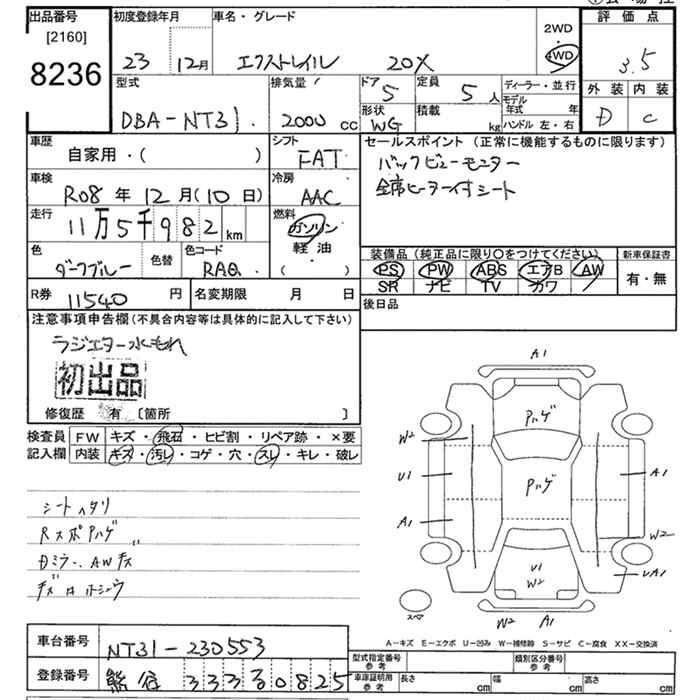 出品番号 初度登録年月 車名・グレード 2WD 評価点
[2160] 23 12月 エクストレイル 20X 4WD 3.5
8236 型式 排気量 ドア 5 定員 5 人 ディーラー・並行 外装 内装
DBA-NT31 2000 cc 形状 WG 積載 kg モデル年式 年 D C
ハンドル 左・右
車歴 シフト セールスポイント (正常に機能するものに限ります)
自家用・( ) FAT バックビューモニター
車検 冷房 全席ヒーター付シート
R08 年 12 月 (10 日) AAC
走行 燃料
11万5千982 km ガソリン
軽油
( )
色 色替 色コード 装備品 (純正品に限り○をつけてください) 新車保証書
ダークブルー RAQ PS PW ABS エアB AW 有・無
SR ナビ TV カワ
R券 11540 円 名変期限 月 日 後日品
注意事項申告欄 (不具合内容等は具体的に記入して下さい)
ラジエター水もれ
初出品
修復歴 有 〔箇所 〕
検査員 FW キズ・飛石・ヒビ割・リペア跡・×要
記入欄 内装 キズ・汚レ・コゲ・穴・スレ・キレ・破レ
シートヘタリ
Rスポハゲ
Dミラー、AWキズ
キズ
A1
ハゲ
W2
ハゲ
U1 A1
A1 W2
U1 W2
UA1
スペア
W2 A1
A-キズ E-エクボ U-凹み W-補修跡 S-サビ C-腐食 XX-交換済
車台番号 NT31-230553
登録番号 熊谷 0825
型式指定番号 参考 類別区分番号 参考
車庫証明用 参考 長さ cm 幅 cm 高さ cm